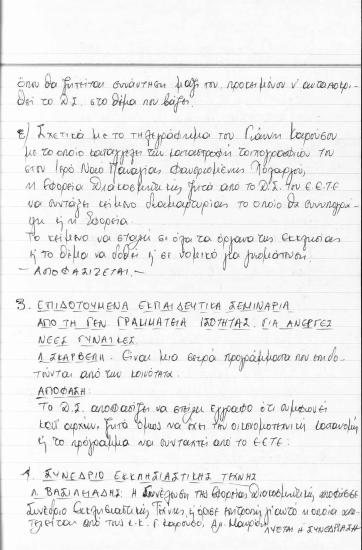 όπου θα ζητείται συνάντηση μαζί του προκειμένου ν' ανταποκρι-
θεί το Δ.Σ. στο θέμα που βάζει.
ε) Σχετικά με το τηλεγράφημα του Γιάννη Καρούσου
με το οποίο καταγγέλει την καταστροφή τοιχογραφιών του
στον Ιερό Ναό Παναγίας Φανερωμένης Χολαργού,
η Εφορεία Διακοσμητικής ζητά από το Δ.Σ. του Ε.Ε.Τ.Ε
να συντάξει κείμενο διαμαρτυρίας το οποίο θα συνυπογρά-
ψει η Εφορεία.
Το κείμενο να σταλεί σε όλα τα όργανα της Εκκλησίας
ή το θέμα να δοθεί ή σε νομικό για γνωμάτευση.
- ΑΠΟΦΑΣΙΖΕΤΑΙ. -
3. ΕΠΙΔΟΤΟΥΜΕΝΑ ΕΚΠΑΙΔΕΥΤΙΚΑ ΣΕΜΙΝΑΡΙΑ
ΑΠΟ ΤΗ ΓΕΝ. ΓΡΑΜΜΑΤΕΙΑ ΙΣΟΤΗΤΑΣ ΓΙΑ ΑΝΕΡΓΕΣ
ΝΕΕΣ ΓΥΝΑΙΚΕΣ.
Λ. ΣΚΑΡΒΕΛΗ: Είναι μια σειρά προγράμματα που επιδο-
τούνται από την κοινότητα.
ΑΠΟΦΑΣΗ:
Το Δ.Σ. αποφασίζει να στείλει έγγραφο ότι συμφωνεί
κατ' αρχήν, ζητά όμως να έχει την οικονομοτεχνική κατανομή
ή το πρόγραμμα να συνταχτεί από το ΕΕΤΕ.
4. ΣΥΝΕΔΡΙΟ ΕΚΚΛΗΣΙΑΣΤΙΚΗΣ ΤΕΧΝΗΣ
Λ. ΒΑΣΙΛΕΙΑΔΗΣ: Η Συνέλευση της Εφορείας Διακοσμητικής αποφάσισε
Συνέδριο Εκκλησιαστικής Τέχνης, ή όρισε επιτροπή γι' αυτό η οποία απο-
τελείται από τους κ.κ. Γ. Καρούσο, Δημ.
ΛΥΕΤΑΙ Η ΣΥΝΕΔΡΙΑΣΗ